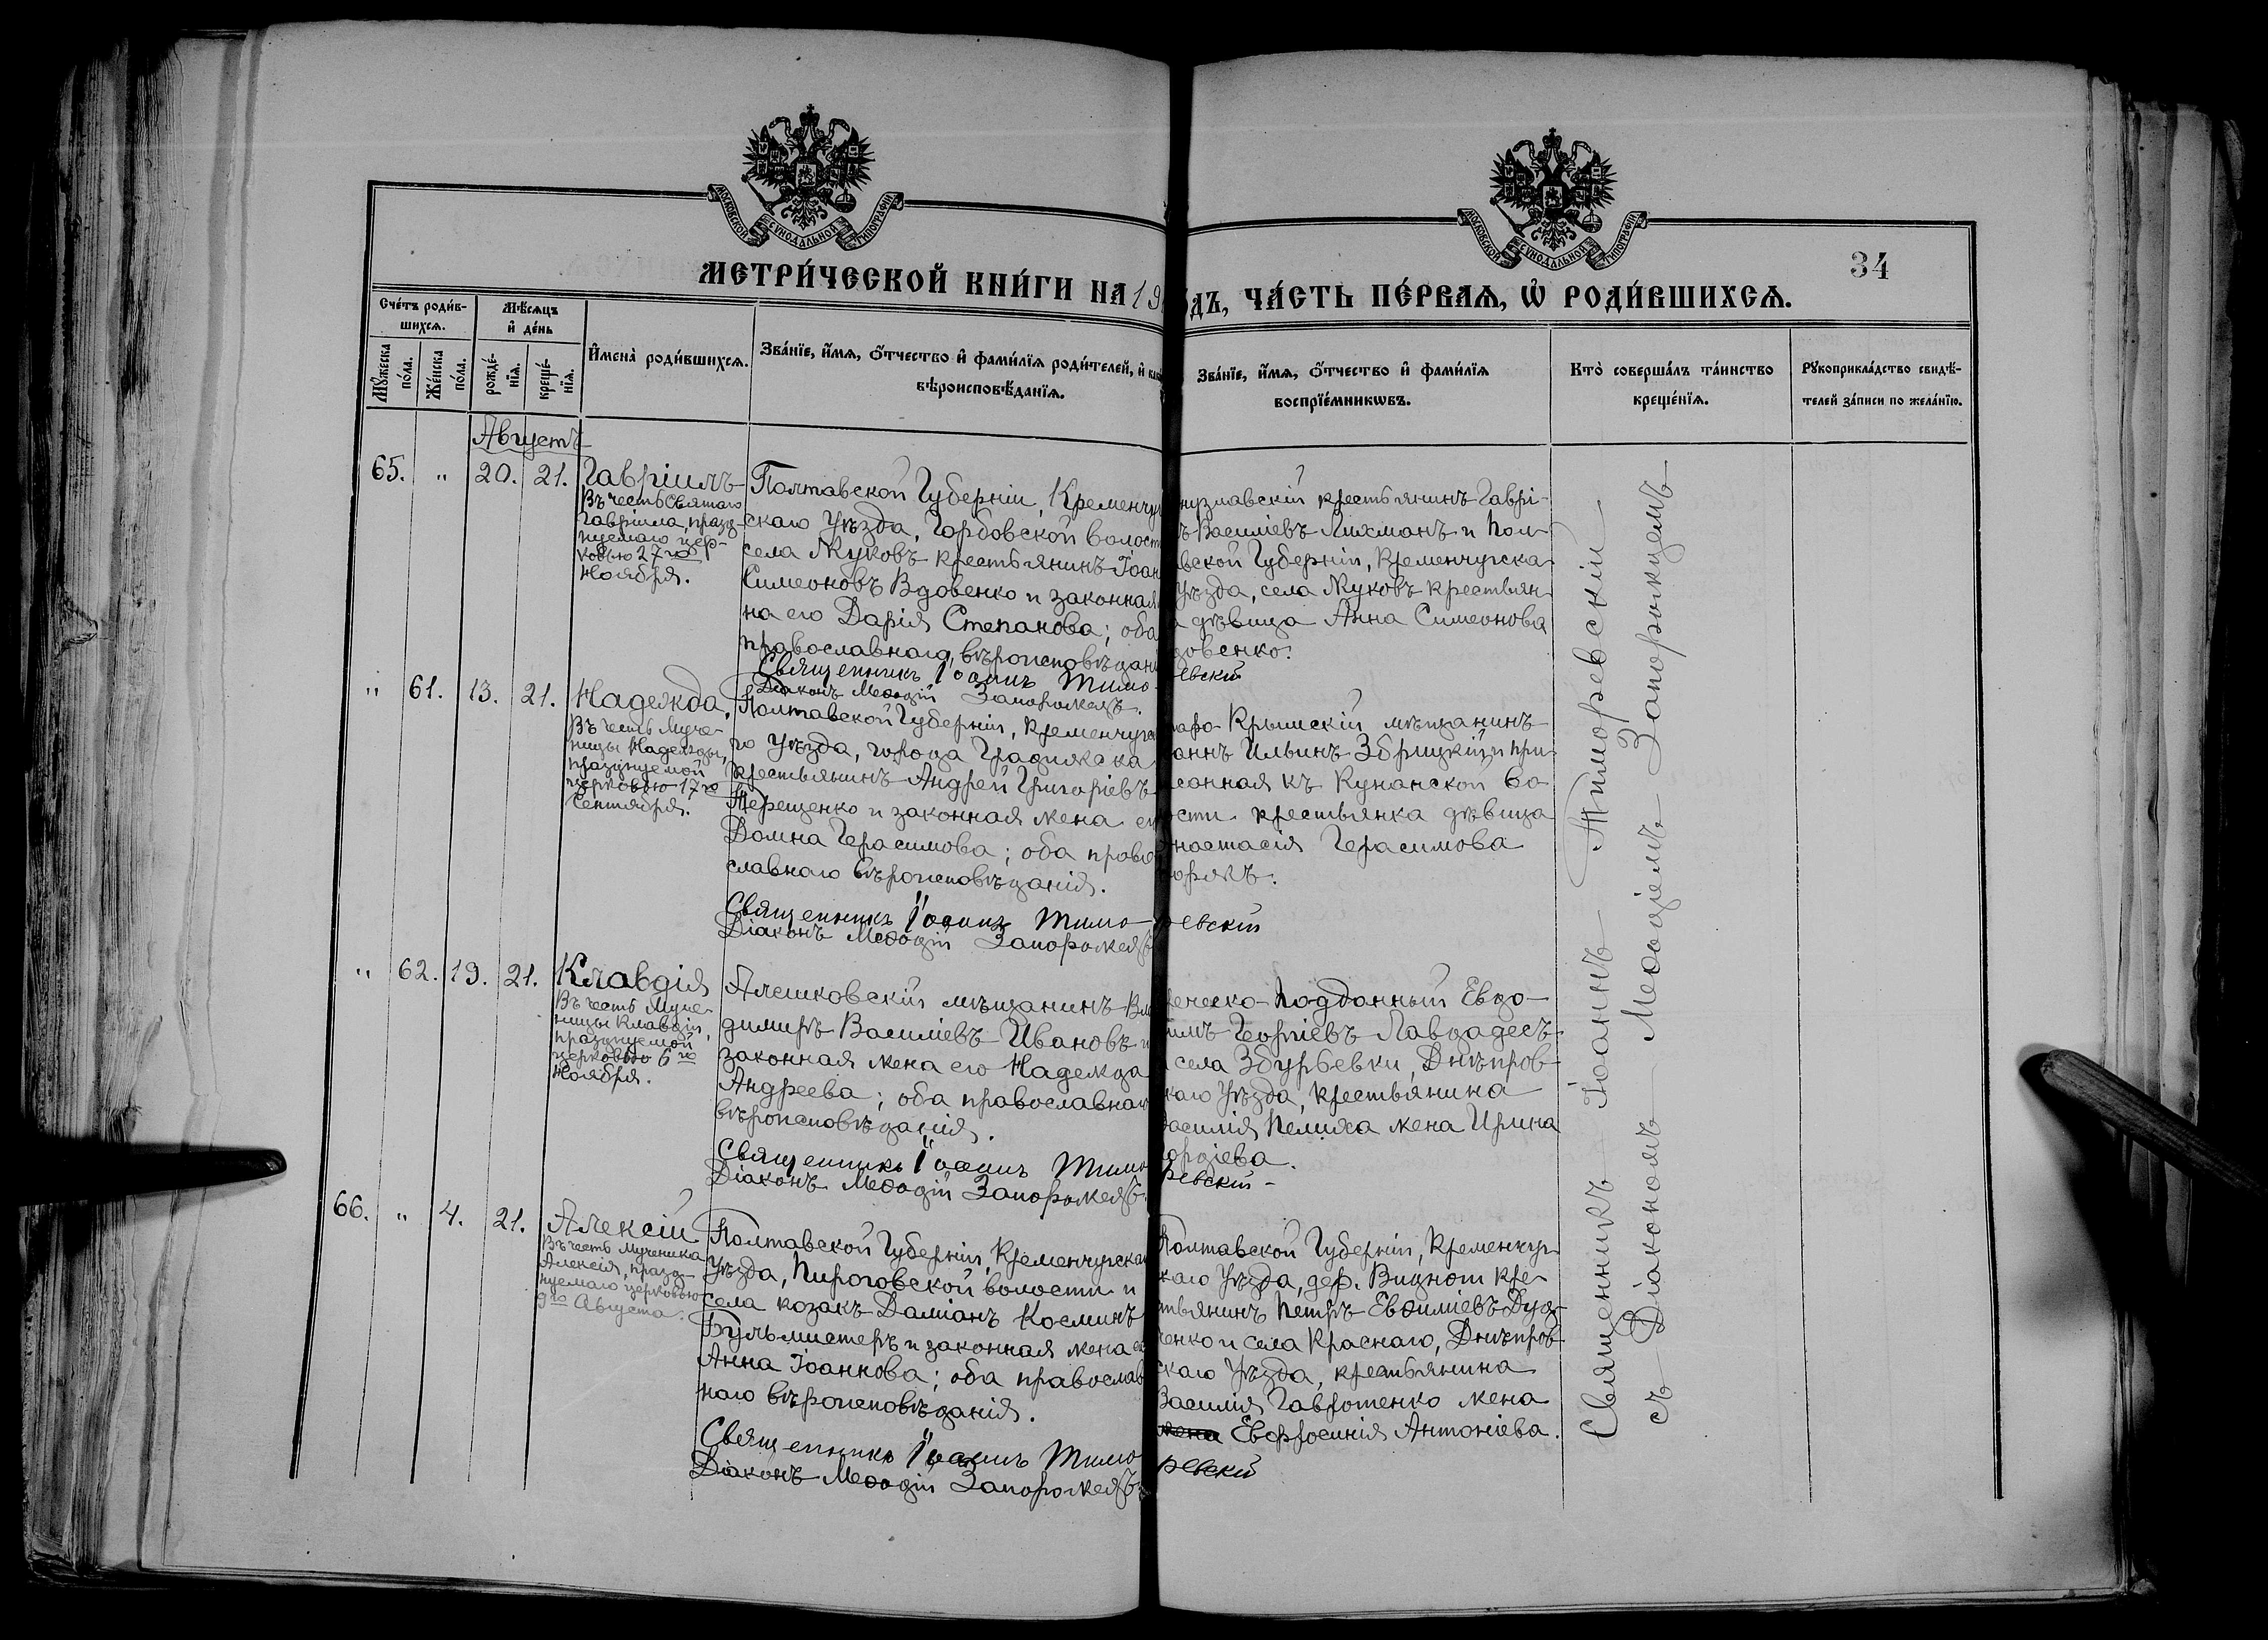 МОСКОВСКОЙ СѴНОДАЛЬНОЙ ТИПОГРАФІИ
МОСКОВСКОЙ СѴНОДАЛЬНОЙ ТИПОГРАФІИ
34
МЕТРИ́ЧЕСКОЙ КНИ́ГИ НА 19
ДЪ, ЧА́СТЬ ПЕ́РВАЯ, Ѡ҆ РОДИ́ВШИХСЯ.
Сче́тъ роди́в-
шихся.
Мѣ́сяцъ
и҆ де́нь
Мꙋ́жеска
по́ла.
Же́нска
по́ла.
рожде́-
нїя.
креще́-
нїя.
И҆мена̀ роди́вшихся.
Зва́нїе, и҆́мя, ѻ҆́тчество и҆ фами́лїя роди́телей, и҆
вѣроисповѣ́данїя.
Зва́нїе, и҆́мя, ѻ҆́тчество и҆ фами́лїя
воспрїе́мникѡвъ.
Кто̀ соверша́лъ та́инство
креще́нїя.
Рꙋкоприкла́дство свидѣ́-
телей за́писи по жела́нїю.
Августъ
65. " 20. 21. Гавріилъ
Въ честь Святаго
Гавріила, празд-
нуемаго цер-
ковью 27го
Ноября.
Полтавской Губерніи, Кременчуг
скаго Уѣзда, Горбовской волост
села Жуковъ крестьянинъ Іоан
Симеоновъ Вдовенко и законная
на его Дарія Степанова; оба
православнаго вѣроисповѣдані
Священникъ Іоаннъ Тимо
Діаконъ Меѳодій Запорожецъ.
крестьянинъ Гаврі-
ъ Василіевъ Лихманъ и Пол-
вской Губерніи, Кременчугска-
Уѣзда, села Жуковъ крестьян-
а дѣвица Анна Симеонова
довенко.
ревскій
" 61. 13. 21. Надежда,
Въ честь Муче-
ницы Надежды,
празднуемой
церковью 17го
Сентября.
Полтавской Губерніи, Кременчугс
го Уѣзда, города Градижска
крестьянинъ Андрей Григоріевъ
Терещенко и законная жена е
Домна Герасимова; оба право
славнаго вѣроисповѣданія.
Священникъ Іоаннъ Тимо
Діаконъ Меѳодій Запорожецъ
таро-Крымскій мѣщанинъ
оаннъ Ильинъ Збрицкій и при-
санная къ Куманской во-
ости крестьянка дѣвица
Анастасія Герасимова
ревскій
" 62. 19. 21. Клавдія
Въ честь Муче-
ницы Клавдіи,
празднуемой
церковью 6го
Ноября.
Алешковскій мѣщанинъ Вла
димиръ Василіевъ Ивановъ и
законная жена его Надежда
Андреева; оба православнаго
вѣроисповѣданія.
Священникъ Іоаннъ Тимо
Діаконъ Меѳодій Запорожецъ.
реческо-подданный Евдо-
имъ Георгіевъ Лавдадесъ
и села Збурьевки, Днѣпров-
скаго Уѣзда, крестьянина
Василія Пелиха жена Ирина
ордіева.
ревскій
66. " 4. 21. Алексій
Въ честь Мученика
Алексія, празд-
нуемаго церковью
9го Августа.
Полтавской Губерніи, Кременчугскаго
Уѣзда, Пироговской волости и
села козакъ Даміанъ Косминъ
Бульмистеръ и законная жена ег
Анна Іоаннова; оба православ
наго вѣроисповѣданія.
Священникъ Іоаннъ Тимо
Діаконъ Меѳодій Запорожецъ
Полтавской Губерніи, Кременчуг-
скаго Уѣзда, дер. кре-
стьянинъ Петръ Евѳиміевъ Дуд-
ченко и села Краснаго, Днѣпров-
скаго Уѣзда, крестьянина
Василія Гавриленко жена
жена Евфросинія Антоніева.
ревскій
Священникъ Іоаннъ Тиморевскій
съ Діакономъ Меѳодіемъ Запорожцемъ